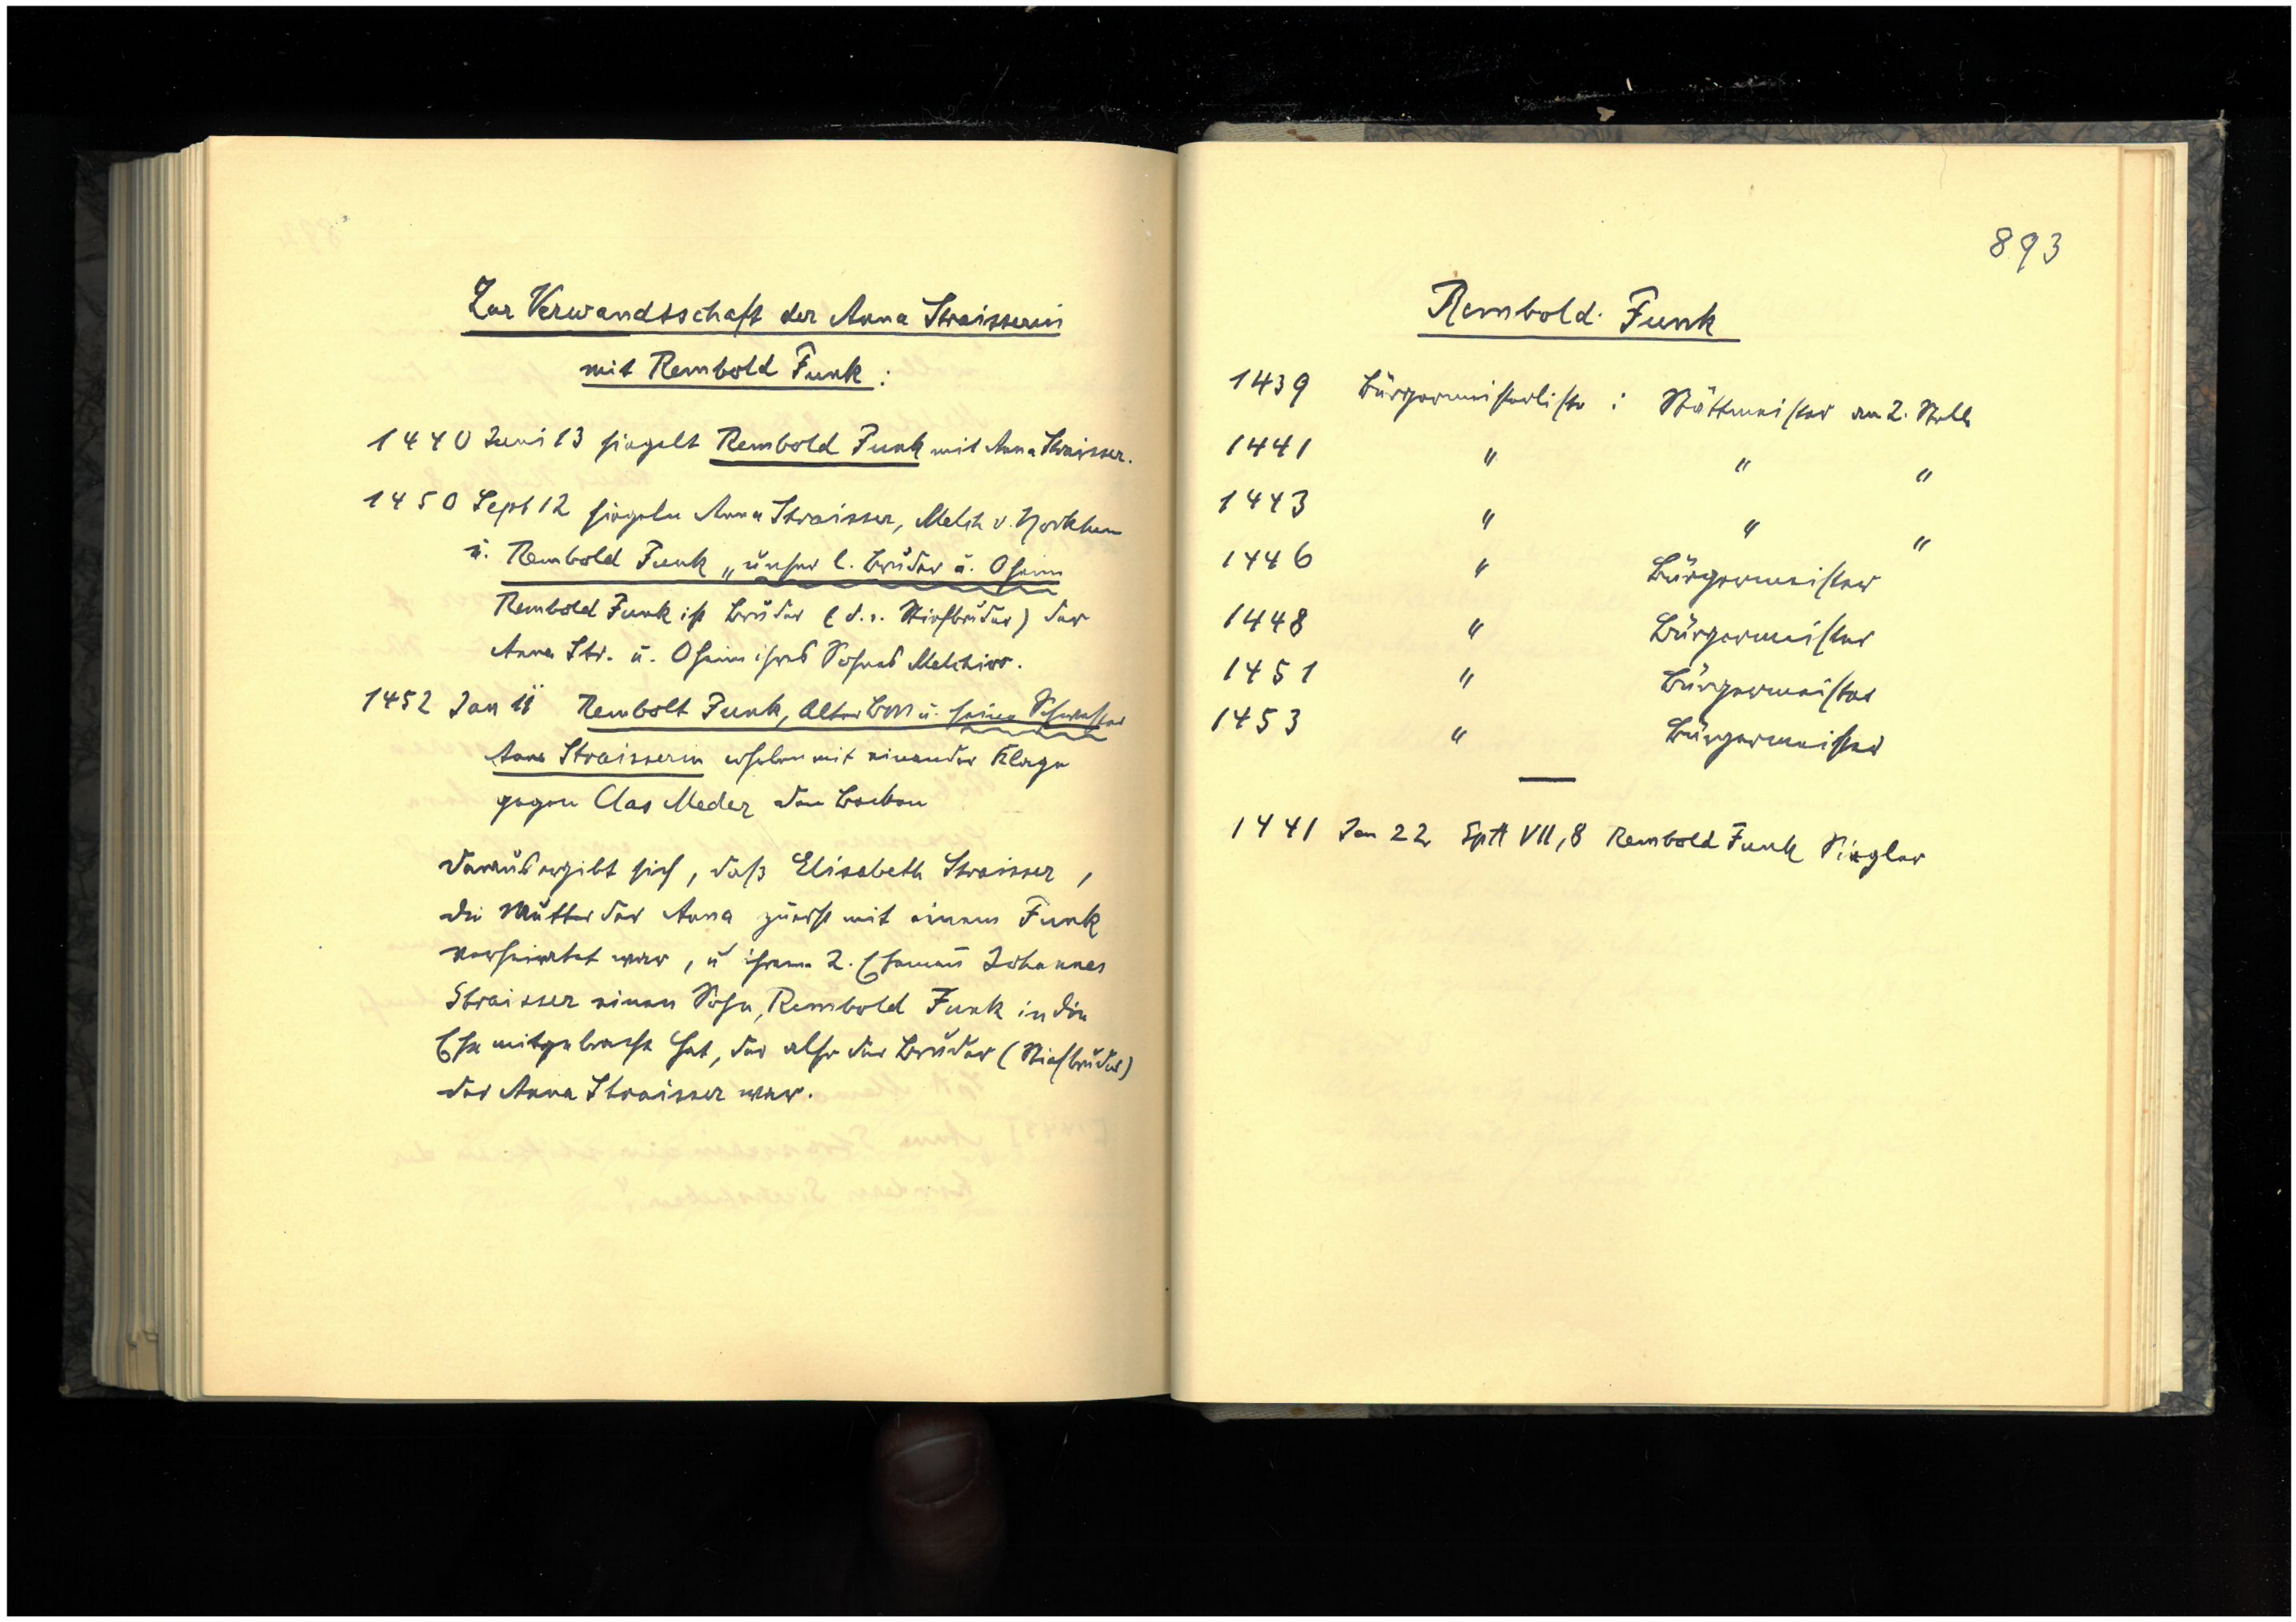 Zur Verwandtschaft der Anna Straisserin
mit Rembold Funk :
1440 Juni 13 siegelt Rembold Funk mit Anna Straisser.
1450 Sept 12 siegeln Anna Straisser, Melch v.
u. Rembold Funk „unser l. Bruder u. Oheim
Rembold Funk ist Bruder (d. i. Stiefbruder) der
Anna Str. u. Oheim ihres Sohnes Melchior.
1452 Jan 11 Rembolt Funk, Alter u. seine Schwester
Anna Straisserin erheben mit einander Klage
gegen Clas Meder den
Daraus ergibt sich, daß Elisabeth Straisser,
die Mutter der Anna zuerst mit einem Funk
verheiratet war, u ihrem 2. Ehemann Johannes
Straisser einen Sohn, Rembold Funk in die
Ehe mitgebracht hat, der also der Bruder (Stiefbruder)
der Anna Straisser war.
893
Rembold Funk
1439 Bürgermeisterliste : Stättmeister an 2. Stelle
1441 " " "
1443 " " "
1446 " Bürgermeister
1448 " Bürgermeister
1451 " Bürgermeister
1453 " Bürgermeister
1441 Jan 22 VII,8 Rembold Funk Siegler